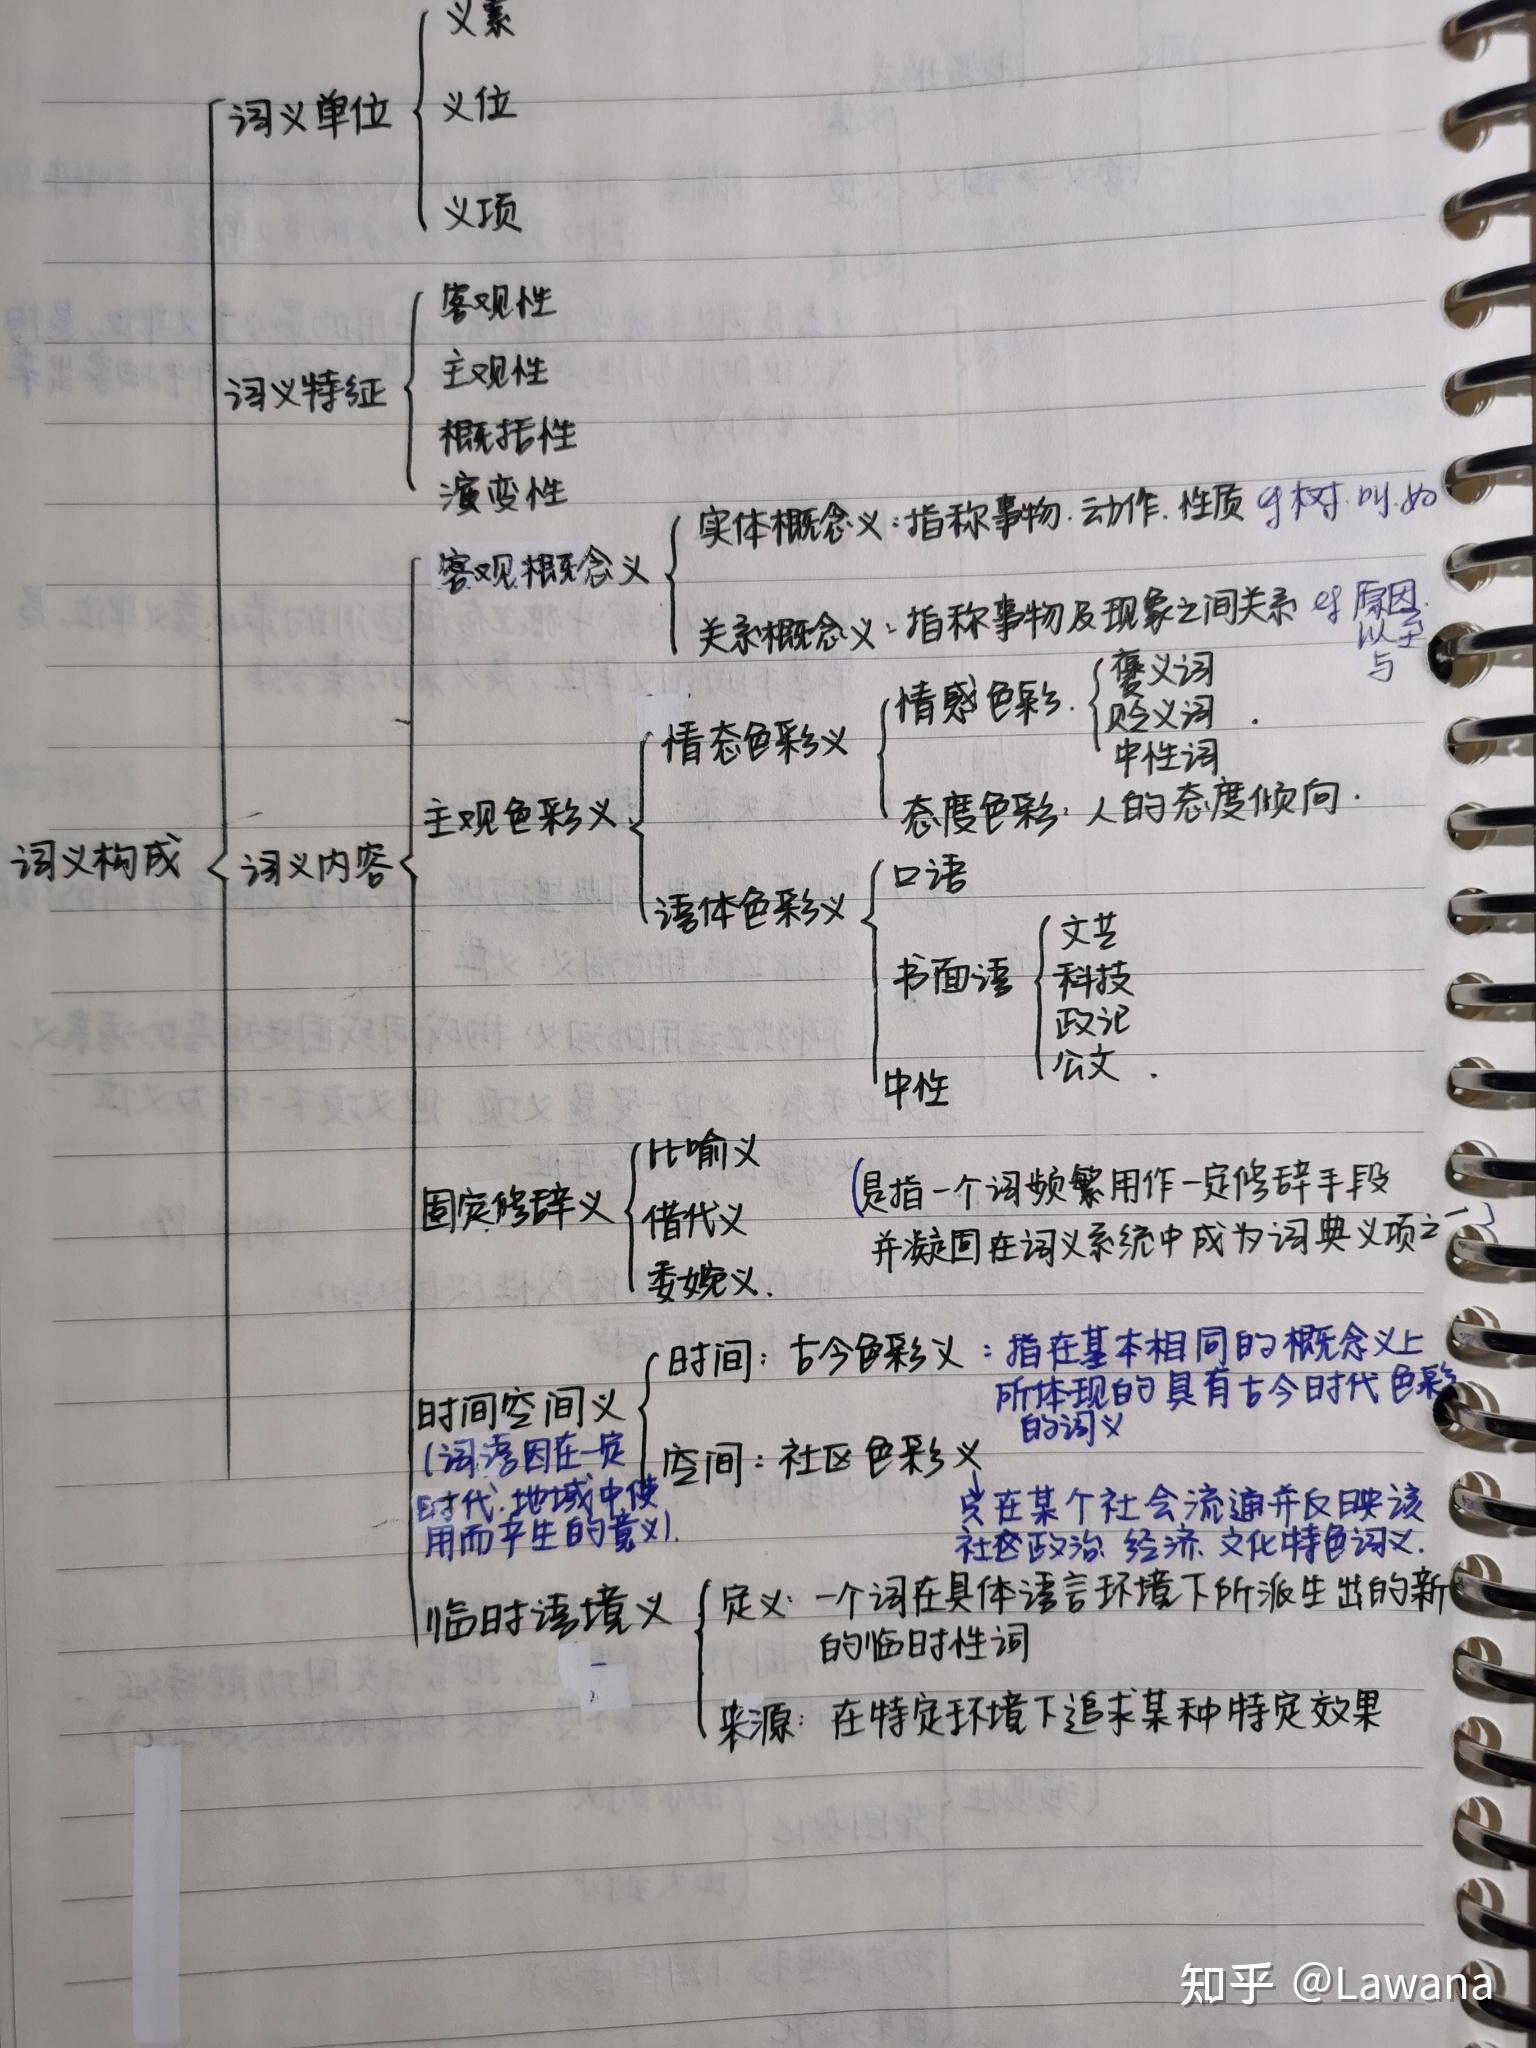 义素
词义单位
义位
义项
客观性
词义特征
主观性
概括性
演变性
客观概念义
实体概念义：指称事物.动作.性质 eg 树.叫.如
关系概念义：指称事物及现象之间关系 eg 原因.
以至
与
词义构成
词义内容
主观色彩义
情态色彩义
情感色彩.
褒义词
贬义词.
中性词
态度色彩：人的态度倾向.
语体色彩义
口语
书面语
文艺
科技
政论
公文.
中性
固定修辞义
比喻义
借代义
委婉义.
(是指一个词频繁用作一定修辞手段
并凝固在词义系统中成为词典义项之一)
时间空间义
(词语因在一定
时代.地域中使
用而产生的意义).
时间：古今色彩义：指在基本相同的概念义上
所体现的具有古今时代色彩
的词义
空间：社区色彩义
只在某个社会流通并反映该
社区政治、经济、文化特色词义.
临时语境义
定义：一个词在具体语言环境下所派生出的新
的临时性词
来源：在特定环境下追求某种特定效果
知乎 @Lawana